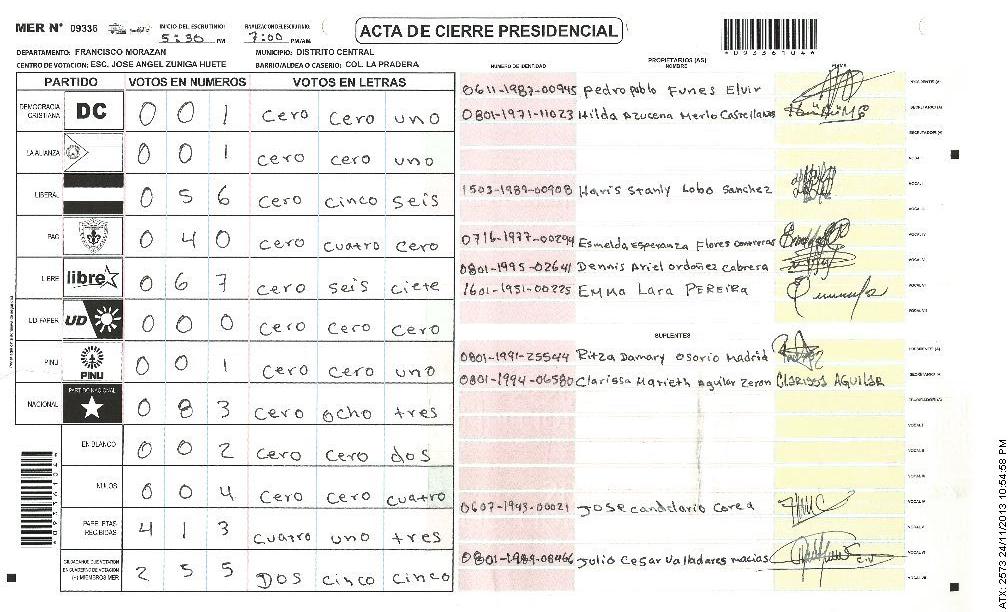 MER N° 09336 INICIO DEL ESCRUTINIO: 5:30 PM FINALIZACION DEL ESCRUTINIO: 7:00 PM/AM
ACTA DE CIERRE PRESIDENCIAL
DEPARTAMENTO: FRANCISCO MORAZAN MUNICIPIO: DISTRITO CENTRAL
CENTRO DE VOTACION: ESC. JOSE ANGEL ZUNIGA HUETE BARRIO/ALDEA O CASERIO: COL. LA PRADERA
PARTIDO VOTOS EN NUMEROS VOTOS EN LETRAS
DEMOCRACIA CRISTIANA DC 0 0 1 cero cero uno
LA ALIANZA 0 0 1 cero cero uno
LIBERAL 0 5 6 cero cinco seis
PAC 0 4 0 cero cuatro cero
LIBRE libre 0 6 7 cero seis ciete
UD FAPER UD 0 0 0 cero cero cero
PINU PINU 0 0 1 cero cero uno
NACIONAL PARTIDO NACIONAL 0 8 3 cero ocho tres
EN BLANCO 0 0 2 cero cero dos
NULOS 0 0 4 cero cero cuatro
PAPELETAS RECIBIDAS 4 1 3 cuatro uno tres
CIUDADANOS QUE VOTARON EN CUADERNO DE VOTACION (+) MIEMBROS MER 2 5 5 DOS cinco cinco
PROPIETARIOS (AS)
NUMERO DE IDENTIDAD NOMBRE FIRMA
0611-1987-00945 Pedro pablo Funes Elvir
0801-1971-11023 Hilda Azucena Merlo Castellanos
1503-1989-00908 Haris Stanly Lobo Sanchez
0716-1977-00294 Esmelda Esperanza Flores Contreras
0801-1995-02641 Dennis Ariel Ordoñez Cabrera
1601-1951-00225 EMMA Lara PEREIRA
SUPLENTES
0801-1991-25544 Ritza Damary Osorio Madrid
0801-1994-06580 Clarissa Marieth Aguilar Zeron CLARISSA AGUILAR
0607-1943-00021 JOSE candelario Corea
0801-1989-08466 Julio Cesar Valladares macias
ATX-2573 24/11/2013 10:54:58 PM